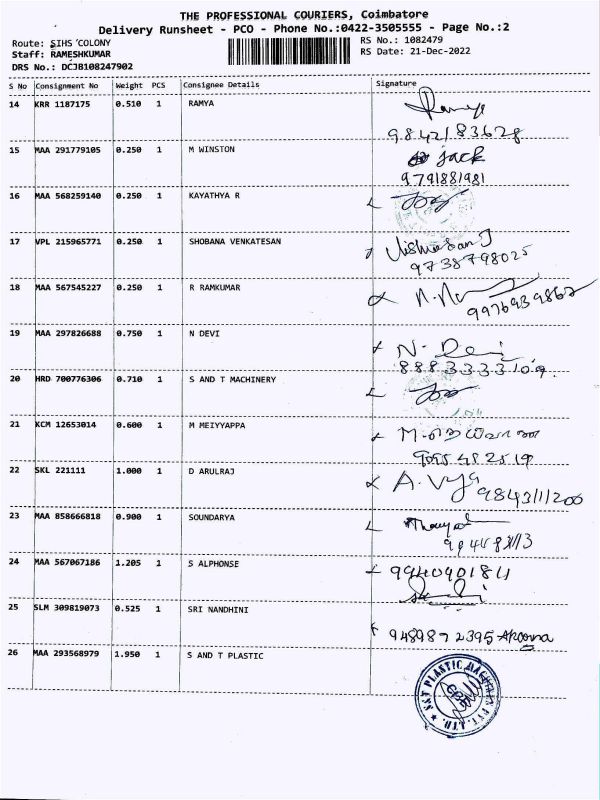 THE PROFESSIONAL COURIERS, Coimbatore
Delivery Runsheet - PCO - Phone No.:0422-3505555 - Page No.:2
Route: SIHS COLONY
RS No.: 1082479
Staff: RAMESHKUMAR
RS Date: 21-Dec-2022
DRS No.: DCJB108247902
S No Consignment No Weight PCS Consignee Details Signature
14 KRR 1187175 0.510 1 RAMYA
9842183628
15 MAA 291779105 0.250 1 M WINSTON jack
9791881981
16 MAA 568259140 0.250 1 KAYATHYA R
17 VPL 215965771 0.250 1 SHOBANA VENKATESAN
9738798025
18 MAA 567545227 0.250 1 R RAMKUMAR
9976939867
19 MAA 297826688 0.750 1 N DEVI N. Devi
20 HRD 700776306 0.710 1 S AND T MACHINERY
21 KCM 12653014 0.600 1 M MEIYYAPPA
22 SKL 221111 1.000 1 D ARULRAJ
9843111200
23 MAA 858666818 0.900 1 SOUNDARYA
24 MAA 567067186 1.205 1 S ALPHONSE
25 SLM 309819073 0.525 1 SRI NANDHINI
9489872395 Aroona
26 MAA 293568979 1.950 1 S AND T PLASTIC
S&T PLASTIC MACHINES PVT. LTD.